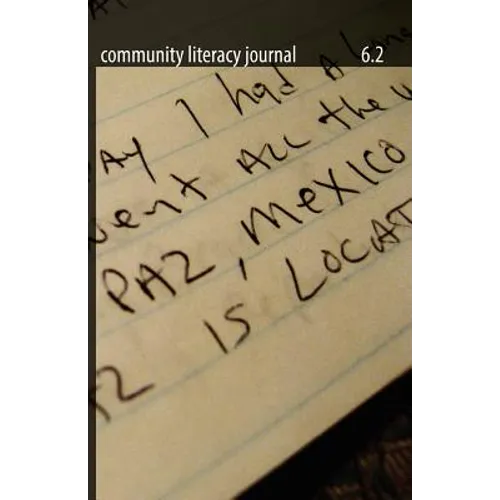 community literacy journal 6.2
AY I had A long
vent ALL the w
PAZ, MEXICO
AZ IS LOCAT